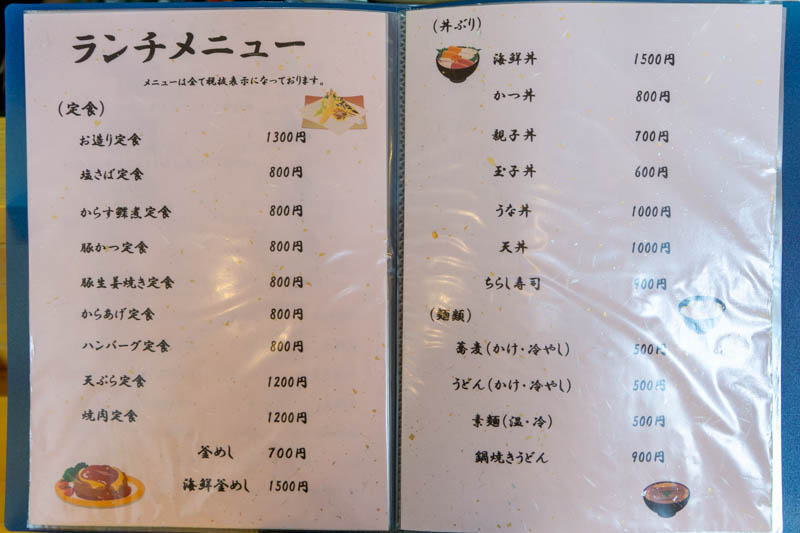 ランチメニュー
メニューは全て税抜表示になっております。
(定食)
お造り定食 1300円
塩さば定食 800円
からす鰈煮定食 800円
豚かつ定食 800円
豚生姜焼き定食 800円
からあげ定食 800円
ハンバーグ定食 800円
天ぷら定食 1200円
焼肉定食 1200円
釜めし 700円
海鮮釜めし 1500円
(丼ぶり)
海鮮丼 1500円
かつ丼 800円
親子丼 700円
玉子丼 600円
うな丼 1000円
天丼 1000円
ちらし寿司 900円
(麺類)
蕎麦(かけ・冷やし) 500円
うどん(かけ・冷やし) 500円
素麺(温・冷) 500円
鍋焼きうどん 900円